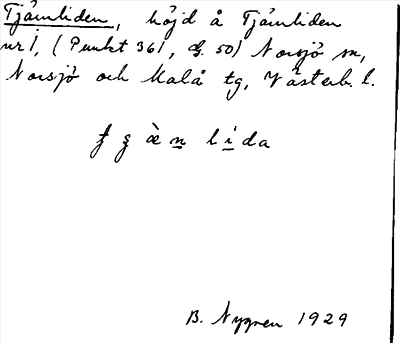 Tjåmliden, höjd å Tjåmliden
nr 1, (Punkt 361, G. 50) Norsjö sn,
Norsjö och Malå tg, Västerb. l.
lida
B. Nygren 1929